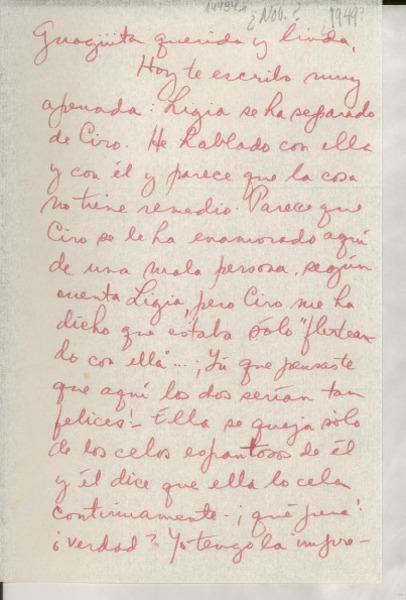 ¿Nov.? ¿1949?
querida y linda,
Hoy te escribo muy
apenada: Ligia se ha separado
de Ciro. He hablado con ella
y con él y parece que la cosa
no tiene remedio. Parece que
Ciro se le ha enamorado aquí
de una mala persona, según
cuenta Ligia, pero Ciro me ha
dicho que estaba sólo "flirtean-
do con ella"... ¡Tú que pensaste
que aquí los dos serían tan
felices!- Ella se queja sólo
de los celos espantosos de él
y él dice que ella lo cela
continuamente- ¡qué pena!
¿verdad? Yo tengo la impre-